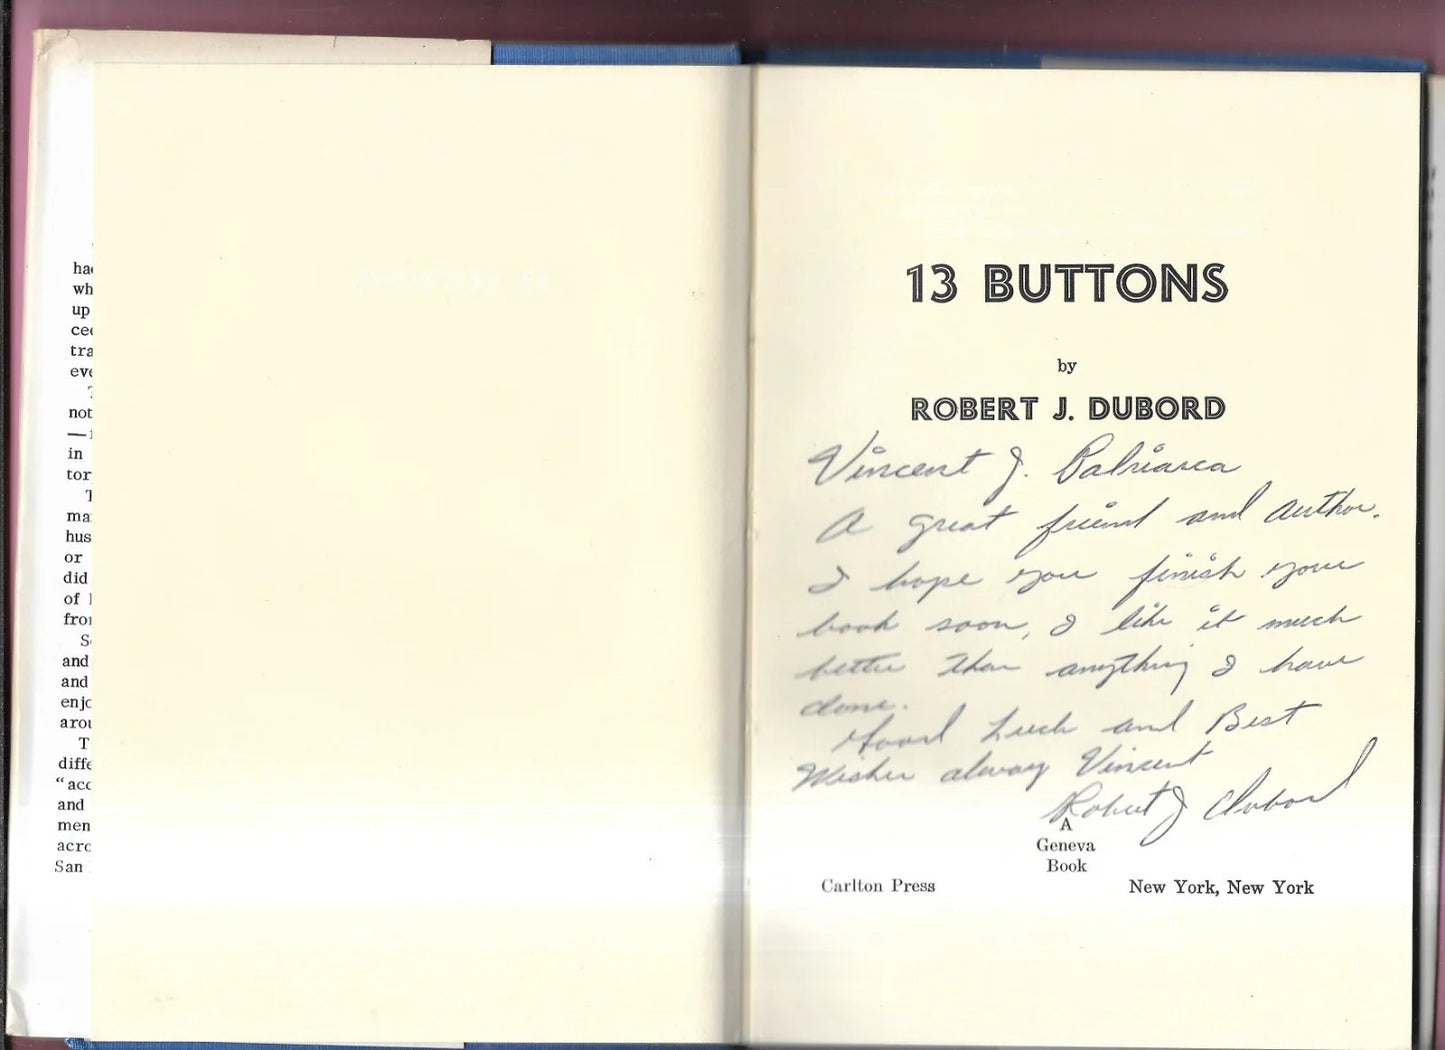 had
wh
up
cee
tra
eve
T
not
in
tor
T
ma
hus
or
did
of
from
S
and
and
enjo
arou
T
diffe
“acc
and
men
acro
San
13 BUTTONS
by
ROBERT J. DUBORD
Vincent J. Patriarca
A great friend and author.
I hope you finish your
book soon, I like it much
better than anything I have
done.
Good Luck and Best
Wishes always Vincent
Robert J Dubord
A
Geneva
Book
Carlton Press New York, New York